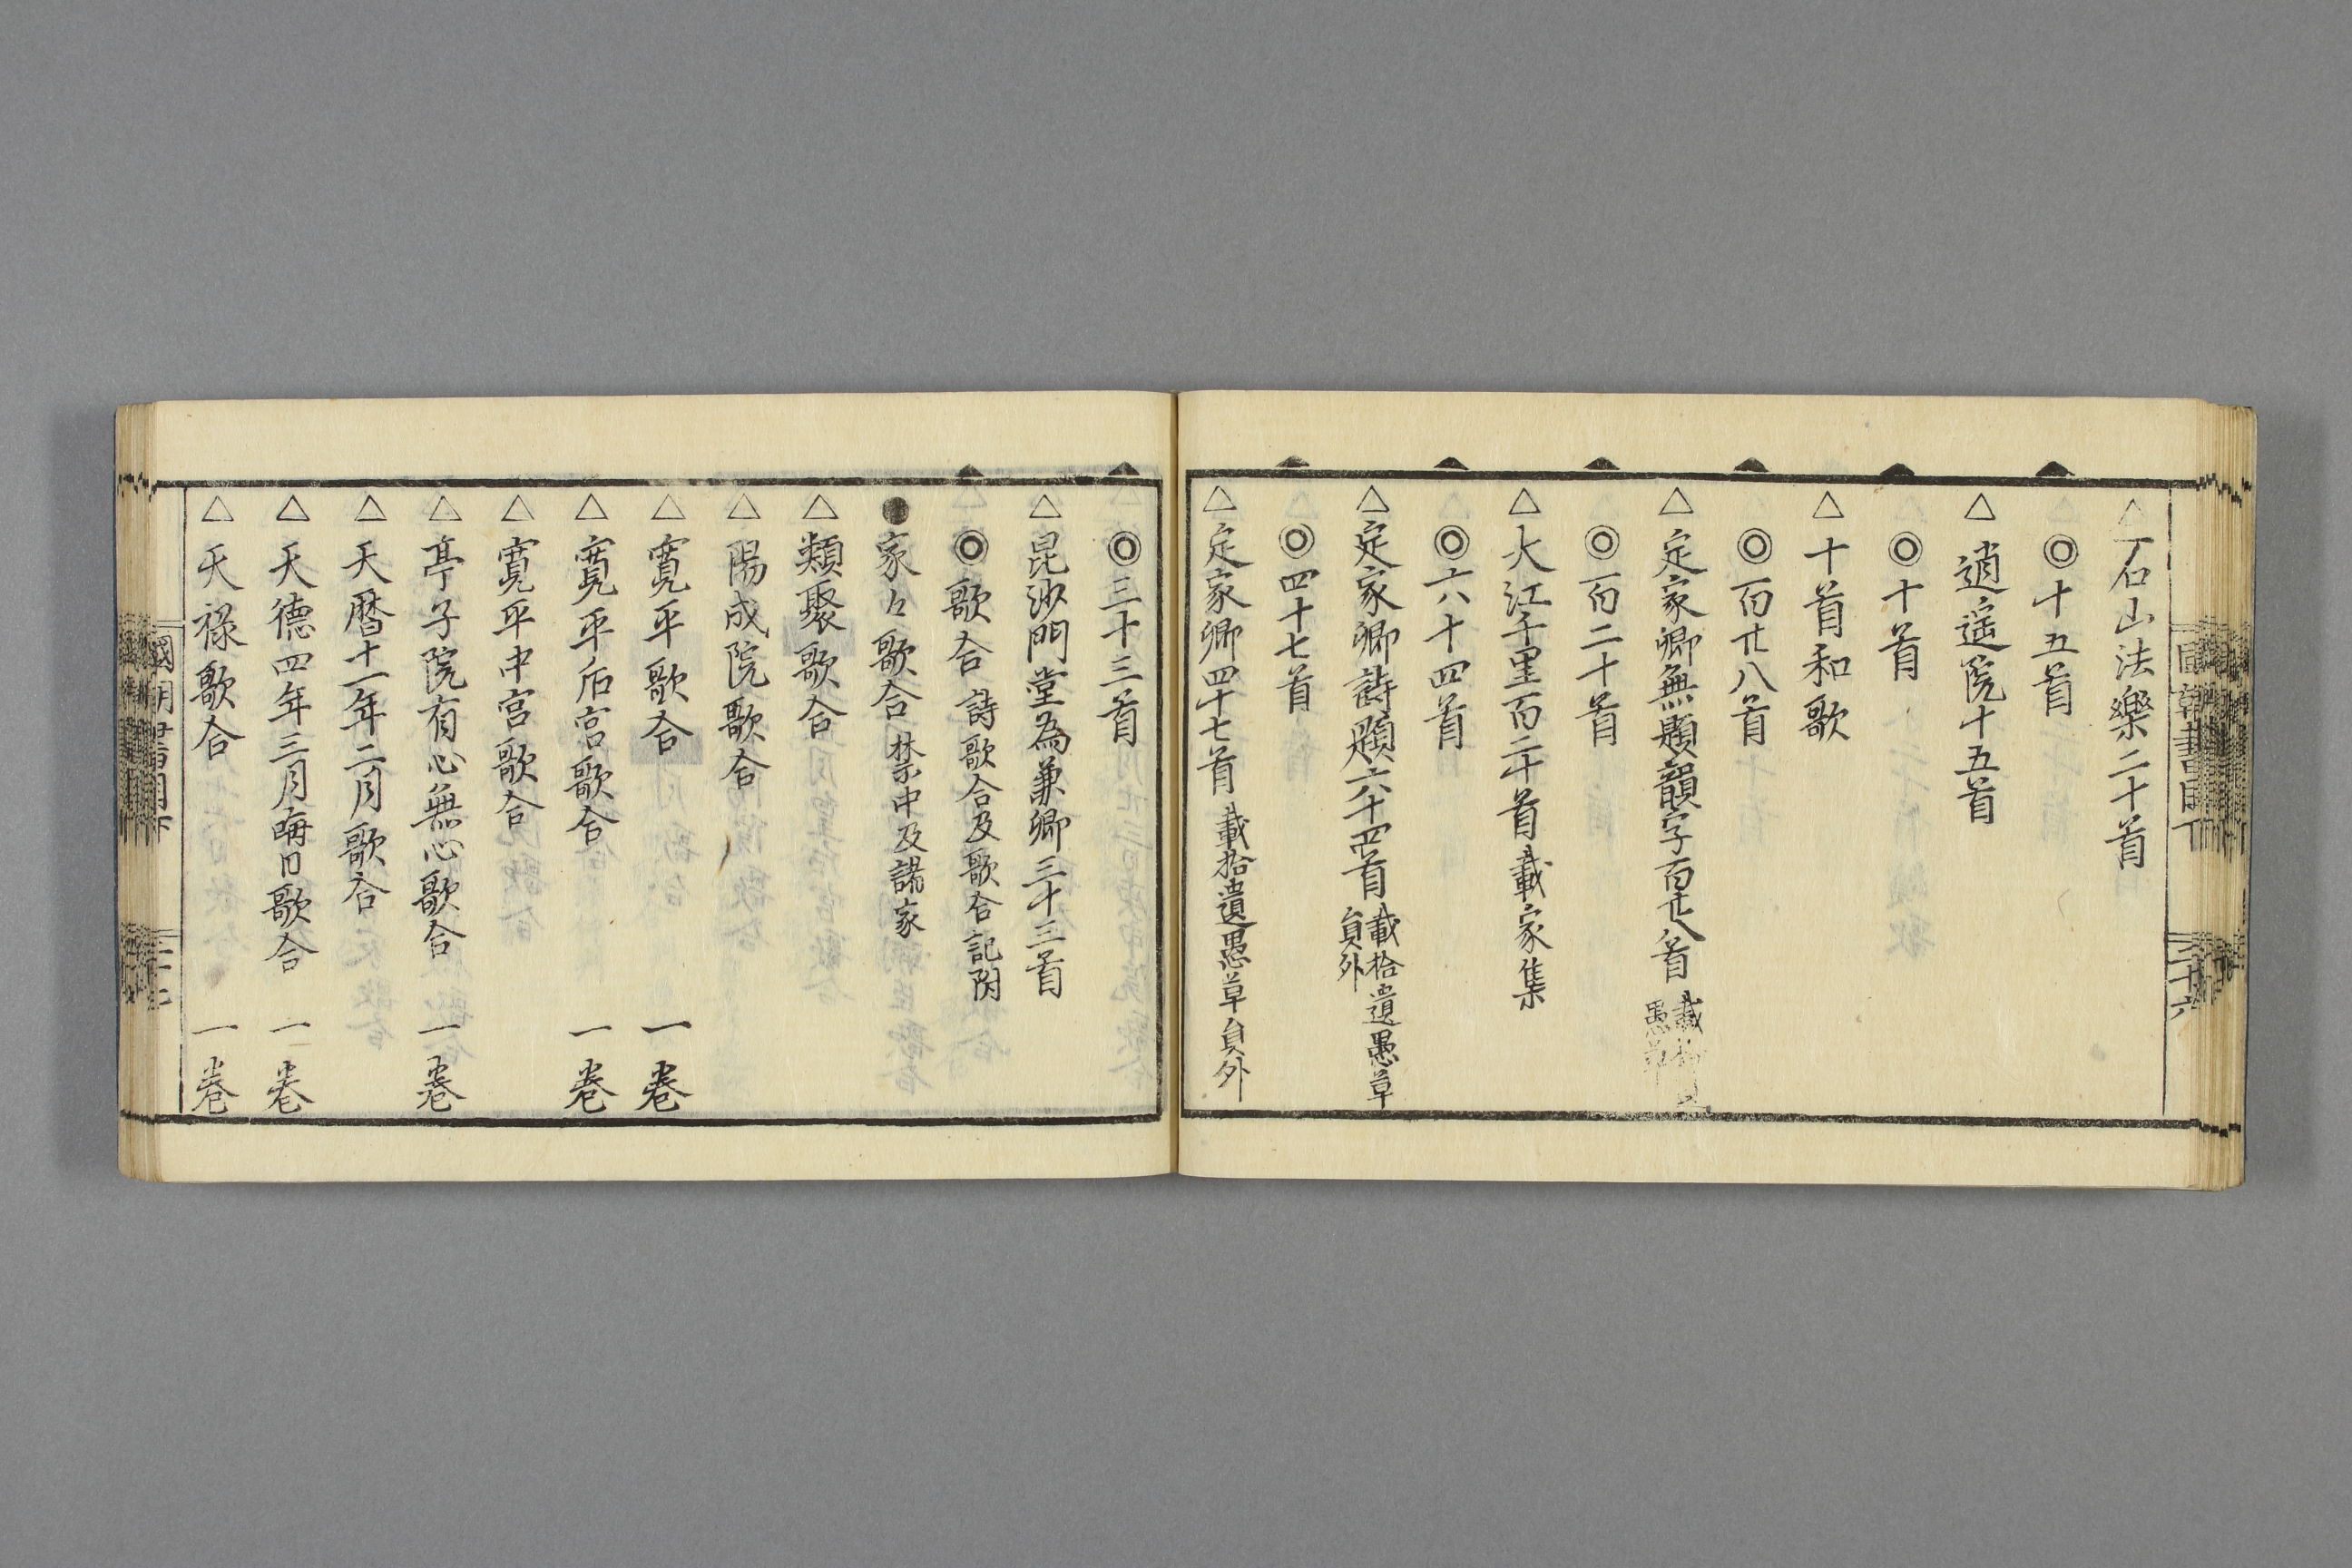 △石山法樂二十首
◎十五首
△逍遥院十五首
◎十首
△十首和歌
◎百廿八首
△定家卿無題韻字百廿八首 載拾遺愚草
◎百二十首
△大江千里百二十首 載家集
◎六十四首
△定家卿詩題六十四首 載拾遺愚草
員外
◎四十七首
△定家卿四十七首 載拾遺愚草員外
◎三十三首
△昆沙門堂為兼卿三十三首
◎歌合 詩歌合及歌合記附
●家々歌合 禁中及諸家
△類聚歌合
△陽成院歌合
△寛平歌合 一巻
△寛平后宮歌合 一巻
△寛平中宮歌合
△亭子院有心無心歌合 一巻
△天暦十一年二月歌合
△天德四年三月晦日歌合 一巻
△天禄歌合 一巻